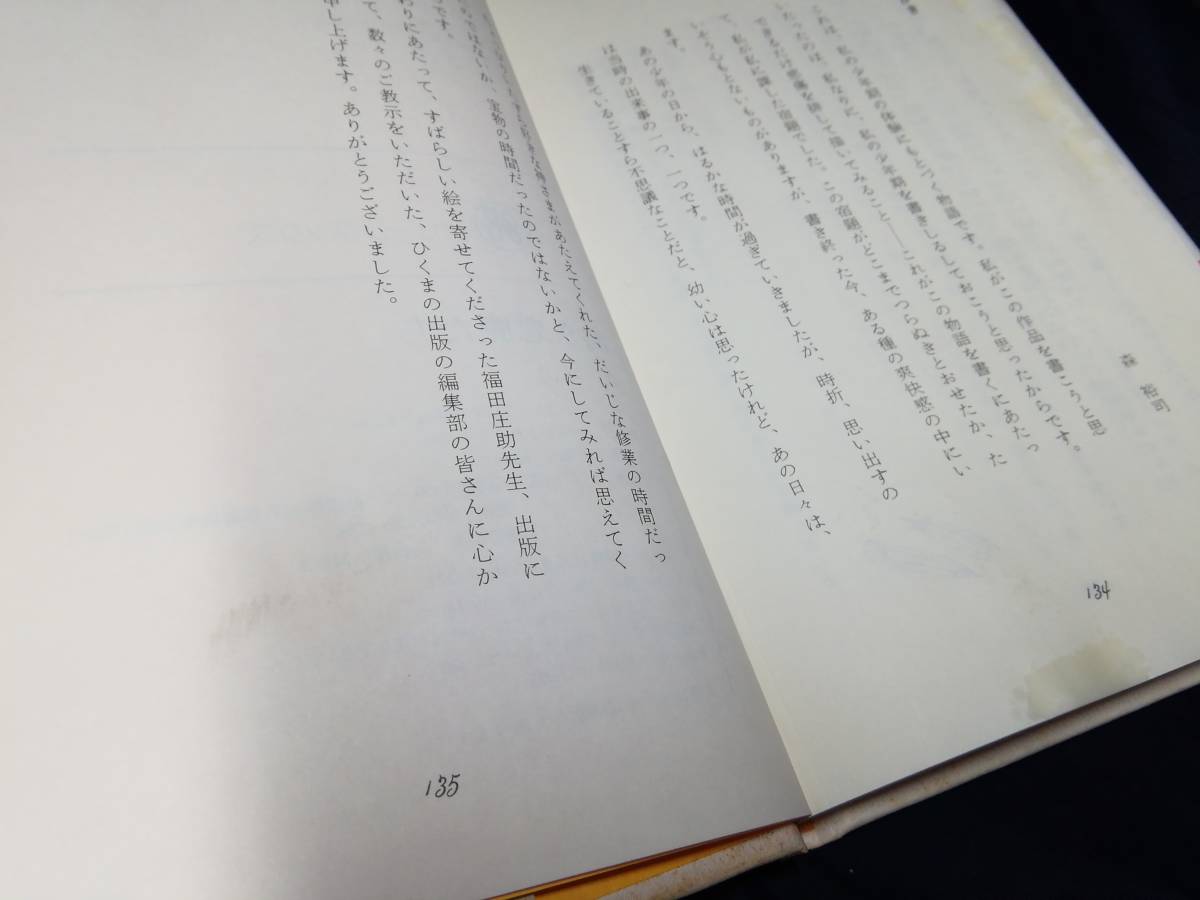 森　裕司
これは、私の少年期の体験にもとづく物語です。私がこの作品を書こうと思
ったのは、私なりに、私の少年期を書きしるしておこうと思ったからです。
できるだけ感傷を排して描いてみること——これがこの物語を書くにあたっ
て、私が私に課した宿題でした。この宿題がどこまでつらぬきとおせたか、た
いそう心もとないものがありますが、書き終った今、ある種の爽快感の中にい
ます。
あの少年の日から、はるかな時間が過ぎていきましたが、時折、思い出すの
は当時の出来事の一つ、一つです。
生きていることすら不思議なことだと、幼い心は思ったけれど、あの日々は、
あたえてくれた、だいじな修業の時間だっ
のではないか、宝物の時間だったのではないかと、今にしてみれば思えてく
のです。
わりにあたって、すばらしい絵を寄せてくださった福田庄助先生、出版に
て、数々のご教示をいただいた、ひくまの出版の編集部の皆さんに心か
申し上げます。ありがとうございました。
134
135